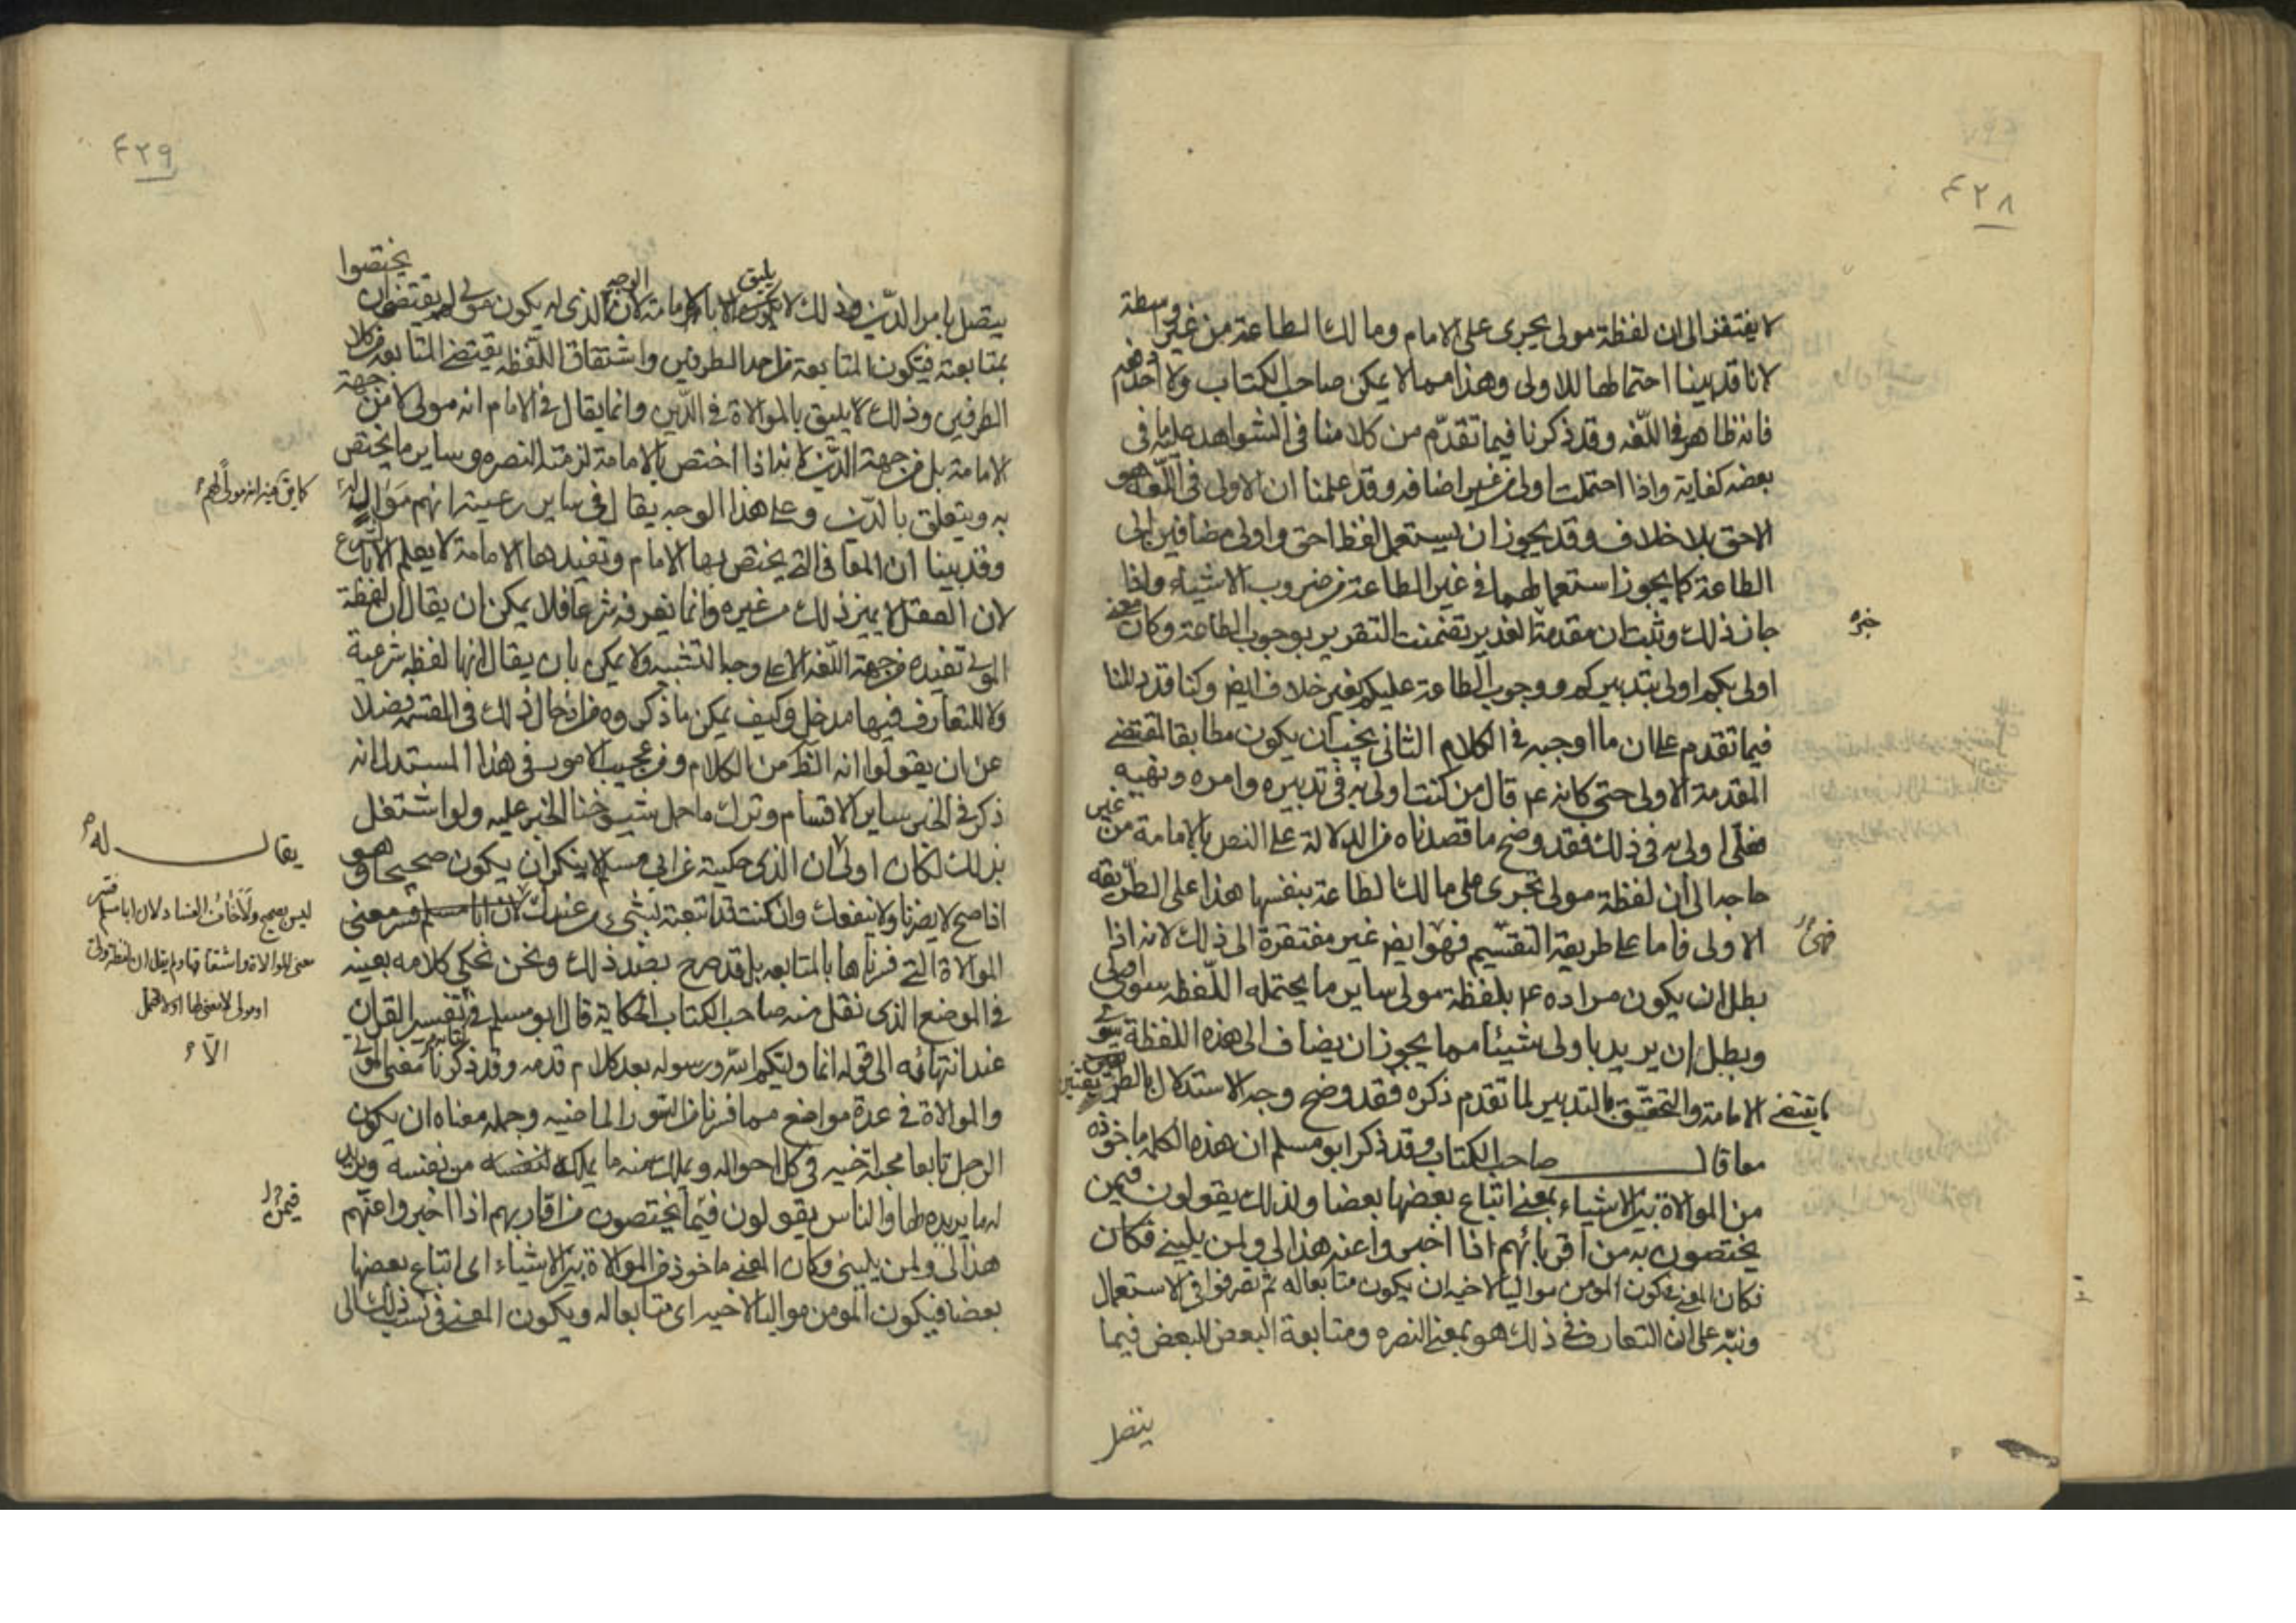 ٤٢٨
لا يفتقر الى ان لفظة مولى يجرى على الامام ومالك الطاعة من غير واسطة
لانا قد بينا احتمالها للاولى وهذا مما لا يمكن صاحب الكتاب ولا احد دفعه
فانه ظاهر فى اللّغه وقد ذكرنا فيما تقدّم من كلامنا فى الشواهد عليه ما فى
بعضه كفاية واذا احتملت اولى من غير اضافه وقد علمنا ان الاولى فى اللّغه هو
الاحق بلا خلاف وقد يجوز ان يستعمل لفظ احق واولى مضافين الى
الطاعة كما يجوز استعمالهما فى غير الطاعة من ضروب الاشياء واذا
جاز ذلك وثبت ان مقدمة الغدير تضمنت التقرير بوجوب الطاعة وكان معنى
خبره
اولى بكم اولى بتدبيركم ووجوب الطاعة عليكم بغير خلاف ايضا وكنا قد دللنا
فيما تقدم على ان ما اوجبه فى الكلام الثانى يجب ان يكون مطابقا لمقتضى
المقدمة الاولى حتى كانه ع قال من كنت اولى به فى تدبيره وامره ونهيه
فعلى اولى به فى ذلك فقد وضح ما قصدناه من الدلالة على النص بالامامة من غير
حاجه الى ان لفظة مولى تجرى على مالك الطاعة بنفسها هذا على الطريقه
الاولى فاما على طريقة التقسيم فهو ايضا غير مفتقرة الى ذلك لانه اذا
فهى
بطل ان يكون مراده ع بلفظة مولى ساير ما يحتمله اللّفظه سوى اولى
وبطل ان يريد باولى شيئا مما يجوز ان يضاف الى هذه اللفظة سوى
ما يقتضى الامامة والتحقق بالتدبير لما تقدم ذكره فقد وضح وجه الاستدلال بالطريقتين
معا قال صاحب الكتاب وقد ذكر ابو مسلم ان هذه الكلمه ماخوذه
من الموالاة بين الاشياء بمعنى اتباع بعضها بعضا ولذلك يقولون فيمن
يختصون به من اقربائهم اذا اخبروا عنه هذا لى ولمن يلينى فكان
فكان المعنى يكون المومن مواليا لاخيه ان يكون متابعا له ثم تصرفوا فى الاستعمال
ونبّه على ان التعارف فى ذلك هو بمعنى النصره ومتابعة البعض للبعض فيما
يتصل
٤٢٩
يتصل بامر الدّين وذلك لا يليق بالامامة لان الوجه الذى له يكون مولى لهم يقتضى ان يختصوا
بمتابعته فيكون المتابعة من احد الطرفين واشتقاق اللّفظه يقتضى المتابعه من كلا
الطرفين وذلك لا يليق بالموالاة فى الدّين وانما يقال فى الامام انه مولى لا من جهة
الامامة بل من جهة الدّين لانه اذا اختص بالامامة لزمته النصره وساير ما يختص
به ويتعلق بالدّين وعلى هذا الوجه يقال فى ساير رعيته انهم موال له
كما يقال فيه انه مولى لهم
وقد بينا ان المعانى التى يختص بها الامام وتفيدها الامامة لا يعلم الا بالشرع
لان العقل لا يميز ذلك من غيره وانما يعرفه شرعا فلا يمكن ان يقال ان لفظة
المولى تفيده من جهة اللّغه الا على وجه التشبيه ولا يمكن بان يقال انها لفظه شرعية
ولا للتعارف فيها مدخل وكيف يمكن ما ذكروه من ادخال ذلك فى القسمه فضلا
عن ان يقولوا انه الظاهر من الكلام ومن عجيب الامور فى هذا المستدل انه
ذكر فى الخبر ساير الاقسام وترك ما حمل شيوخنا الخبر عليه ولو اشتغل
بذلك لكان اولى يقال له ان الذى حكيته عن ابى مسلم لا ينكر ان يكون صحيحا وهو
اذا صح لا يضرنا ولا ينفعك وان كنت قد اتبعته بشىء من عندك ليس بصحيح ولا خاف الفساد لان ابا مسلم فسر
معنى الموالاة واشتقاقها ولم يقل ان لفظة مولى
او مولى لا معنى لها ولا تحتمل
الا
الموالاة التى فسرناها بالمتابعه بل قد صرح بضد ذلك ونحن نحكى كلامه بعينه
فى الموضع الذى نقل منه صاحب الكتاب الحكاية قال ابو مسلم فى تفسير القران
عند انتهائه الى قوله انما وليكم اللّه ورسوله بعد كلام قدمه وقد ذكرنا معنى المولى
والموالاة فى عدة مواضع مما فسرنا من السور الماضيه وجمله معناه ان يكون
الرجل تابعا محبة اخيه فى كل احواله ويملك منه ما يملك من نفسه ويريد
له ما يريده لها والناس يقولون فيمن يختصون من اقاربهم اذا اخبروا عنهم
هذا لى ولمن يلينى وكان المعنى ماخوذ من الموالاة بين الاشياء اى اتباع بعضها
بعضا فيكون المومن مواليا لاخيه اى متابعا له ويكون المعنى فى نسب ذلك الى